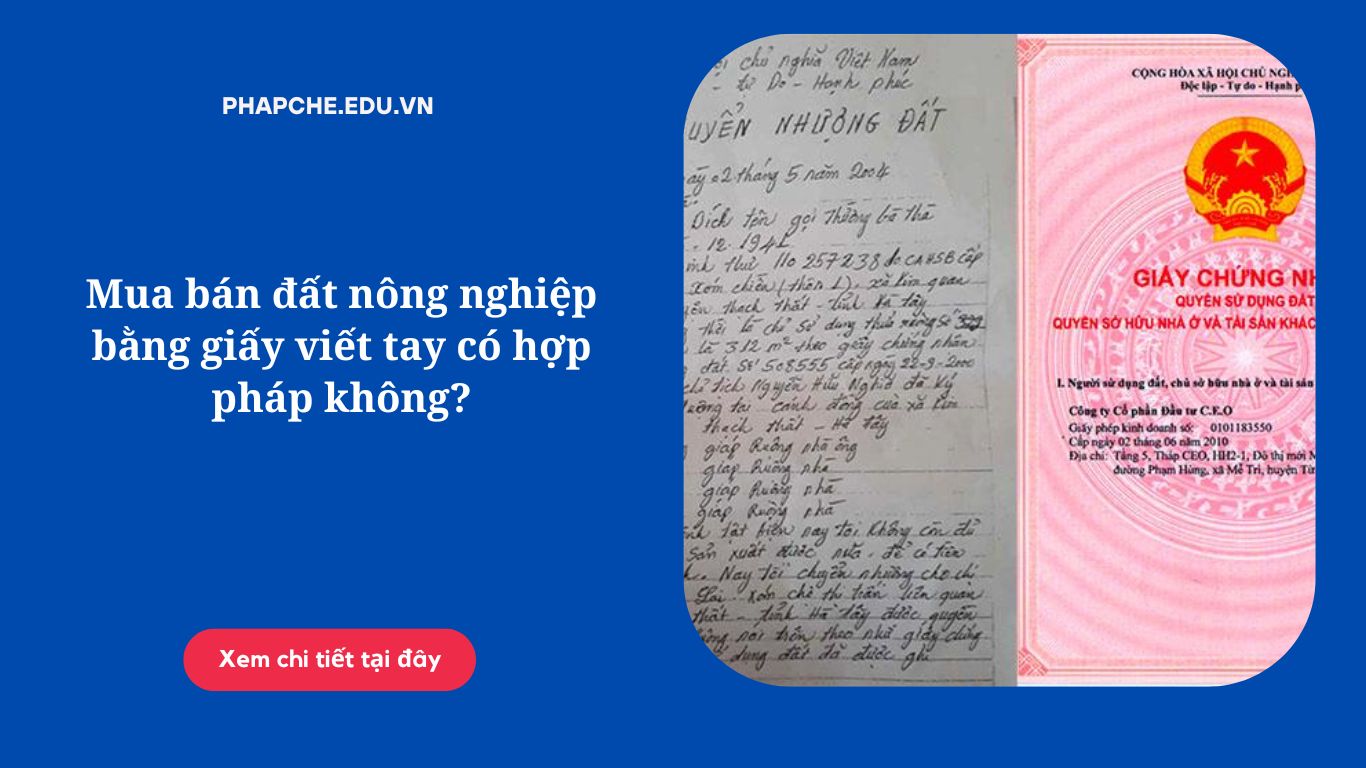 PHAPCHE.EDU.VN
Mua bán đất nông nghiệp
bằng giấy viết tay có hợp
pháp không?
Xem chi tiết tại đây
chủ nghĩa Việt Nam
- tự Do - Hạnh phúc
UYỂN NHƯỢNG ĐẤT
2 tháng 5 năm 2004
Dích tên gọi Thường bà Thà
12. 1941
thư 110 257238 do CAHSB cấp
Xóm chiến (thôn 1), xã Kim quan
thạch Thất - tỉnh Hà tây
tôi là chủ sử dụng thửa ruộng số
là 312 m² theo giấy chứng nhận
đất. Số 508555 cấp ngày 22-9-2000
chủ tịch Nguyễn Hữu Nghĩa đã ký
tại cánh đồng của xã Kim
thạch thất - Hà tây
giáp Ruộng nhà ông
giáp Ruộng nhà
giáp Ruộng nhà
giáp Ruộng nhà
tật hiện nay tôi không còn đủ
sản xuất được nữa. để có tiền
Nay tôi chuyển nhượng cho chị
xóm chè thị trấn liên quan
thất - tỉnh Hà tây được quyền
nói trên theo như giấy chứng
dụng đất đã được ghi
CỘNG HÒA XÃ HỘI CHỦ NGH
Độc lập - Tự do - Hạnh p
GIẤY CHỨNG NH
QUYỀN SỬ DỤNG ĐẤT
QUYỀN SỞ HỮU NHÀ Ở VÀ TÀI SẢN KHÁC
I. Người sử dụng đất, chủ sở hữu nhà ở và tài sản
Công ty Cổ phần Đầu tư C.E.O
Giấy phép kinh doanh số: 0101183550
Cấp ngày 02 tháng 06 năm 2010
Địa chỉ: Tầng 5, Tháp CEO, HH2-1, Đô thị mới M
đường Phạm Hùng, xã Mễ Trì, huyện Từ